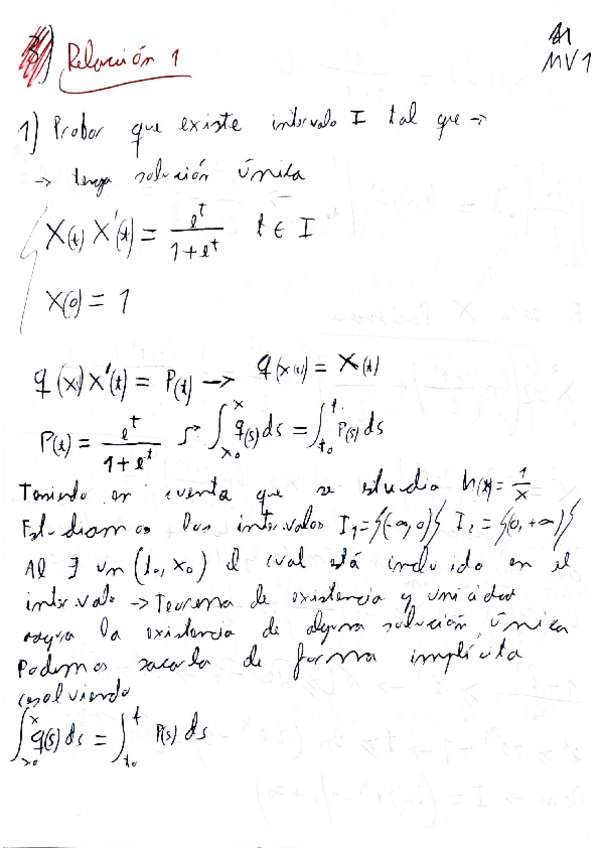 Relación 1
MV1
1) Probar que existe intervalo I tal que →
→ tenga solución única
X(t) X'(t) = e^t / (1+e^t)   t ∈ I
X(0) = 1
q(x) X'(t) = P(t) → q(x(t)) = X(t)
P(t) = e^t / (1+e^t)   ∫_{x₀}^{x} q(s) ds = ∫_{t₀}^{t} P(s) ds
Teniendo en cuenta que se estudia h(x) = 1/x
Estudiamos los intervalos I₁ = {(-∞,0)} I₂ = {(0,+∞)}
Al ∃ un (t₀, x₀) el cual está incluido en el
intervalo → Teorema de existencia y unicidad
la existencia de alguna solución única
Podemos sacarla de forma implícita
resolviendo
∫_{x₀}^{x} q(s) ds = ∫_{t₀}^{t} P(s) ds